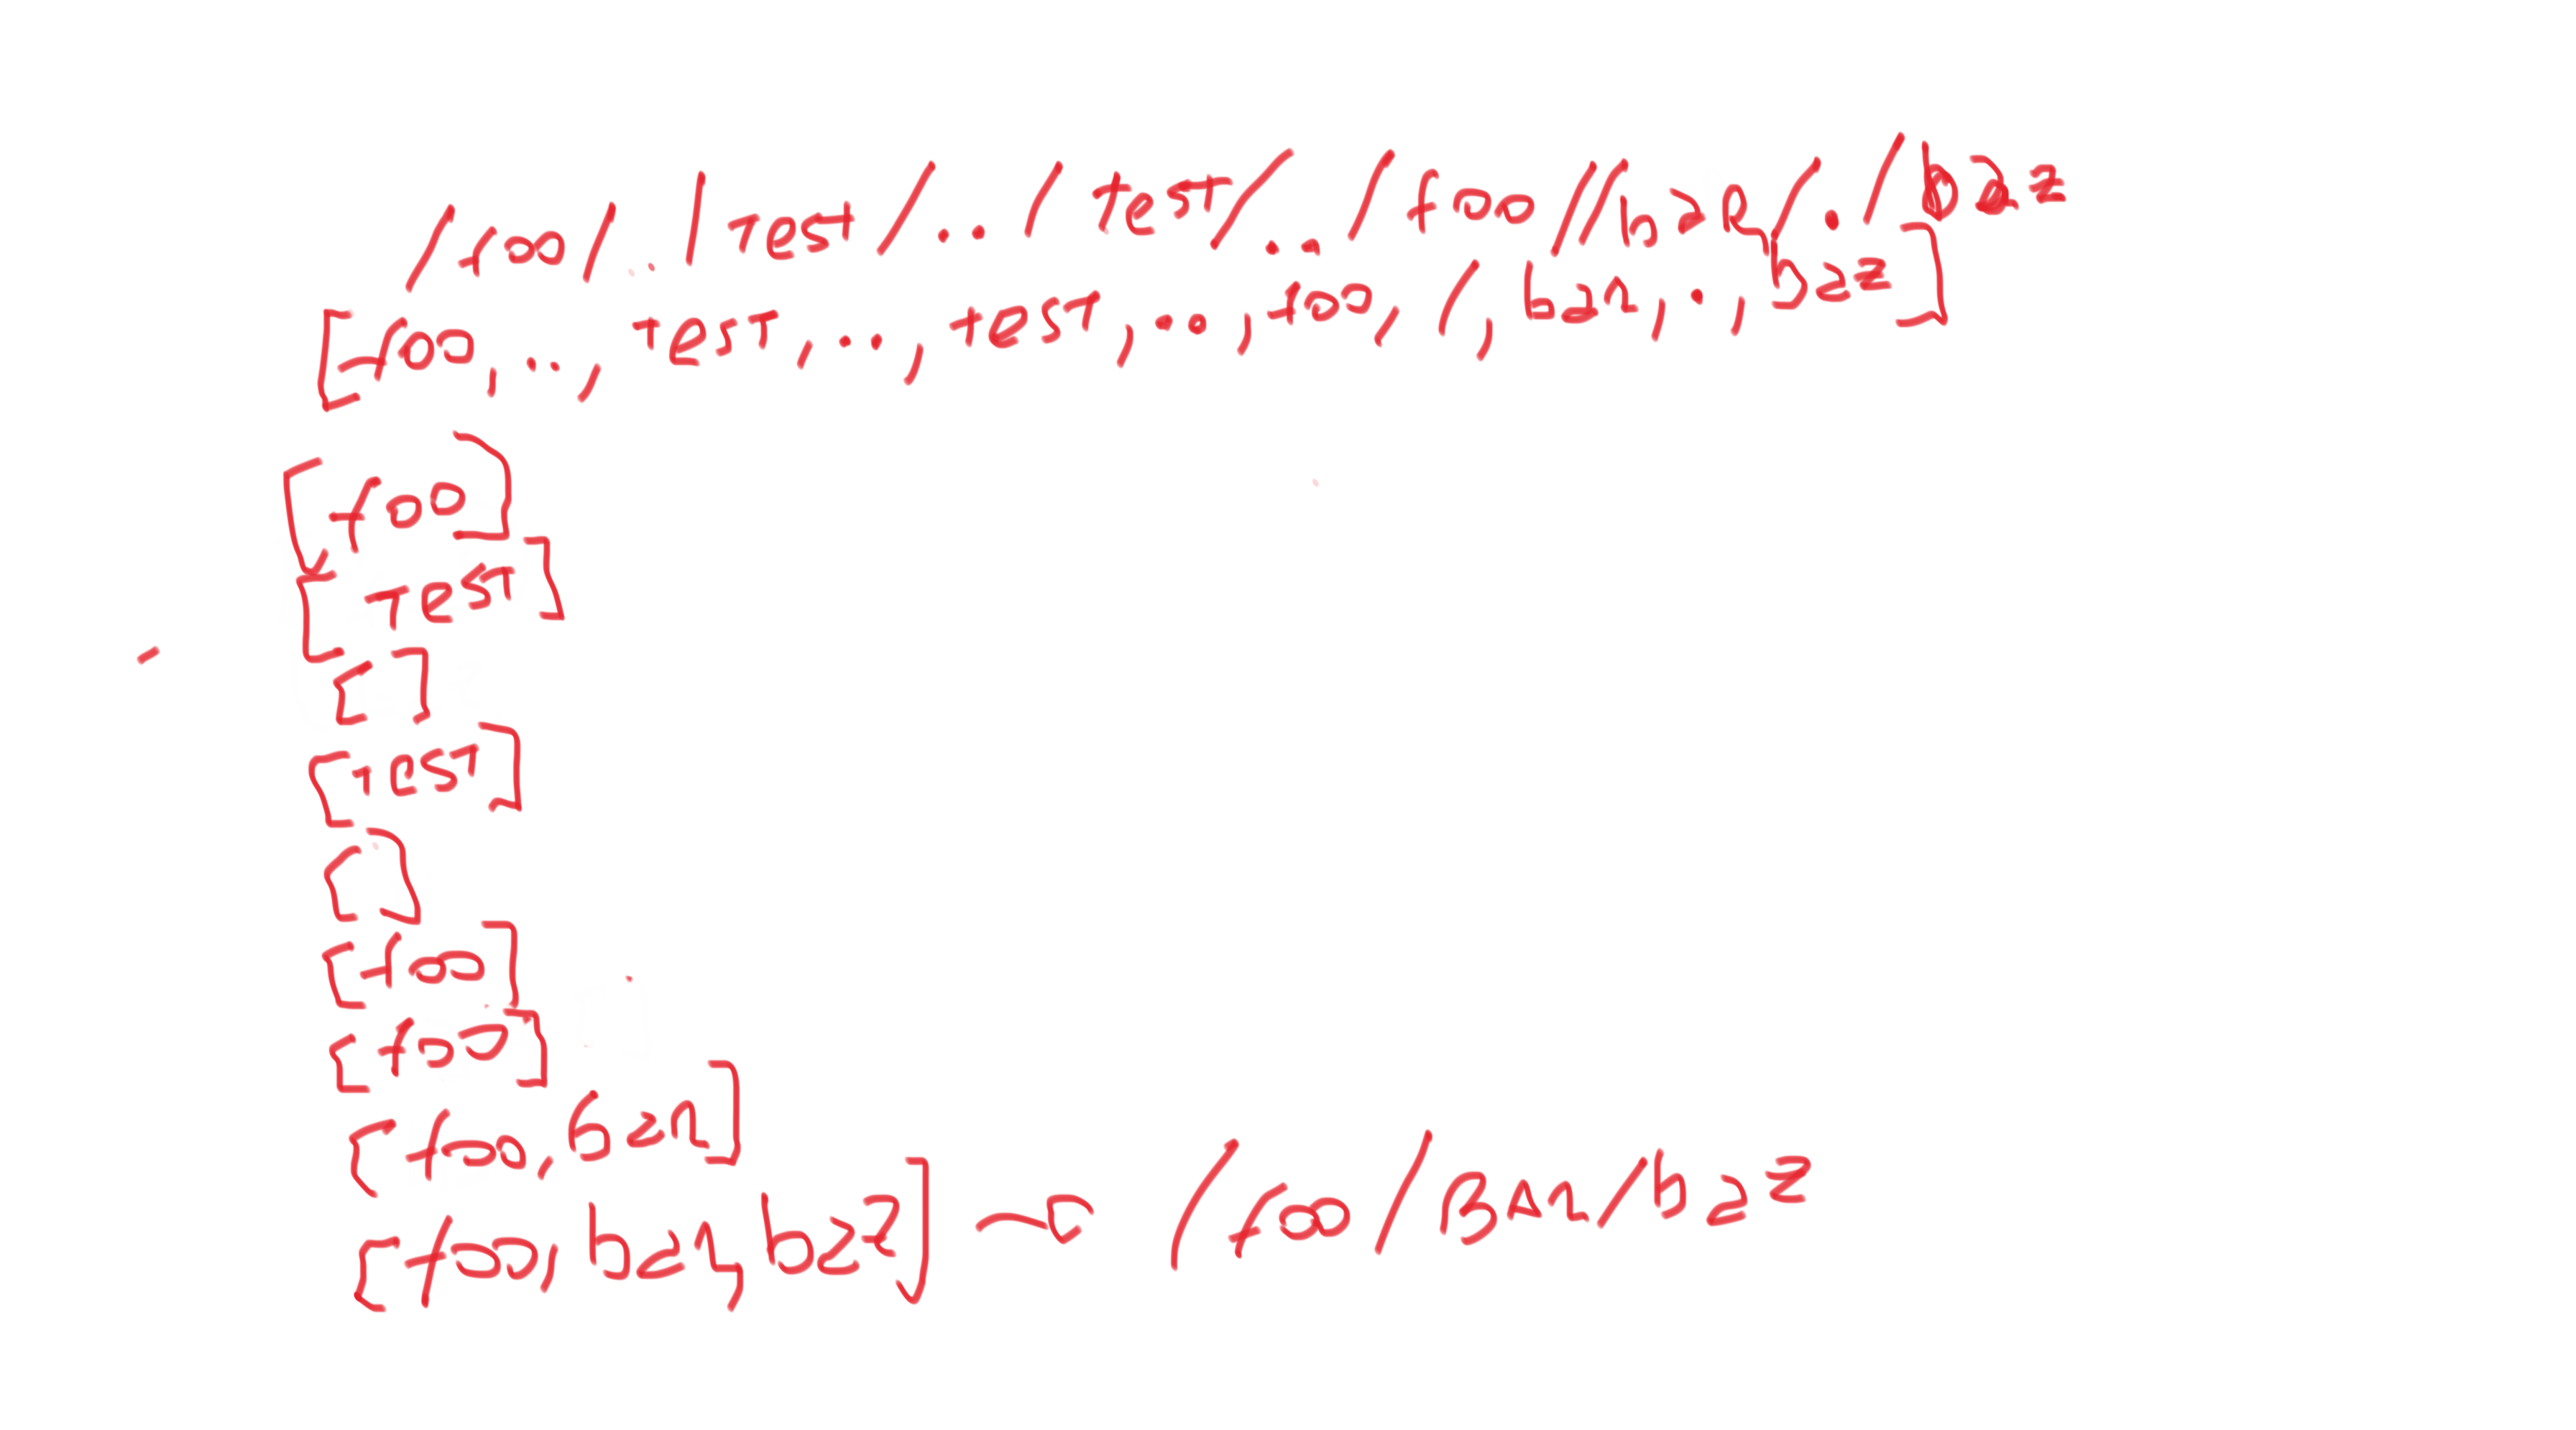 /foo/../test/../test/../foo//bar/./baz
[foo,..,test,..,test,..,foo,/,bar,.,baz]
[foo]
[test]
[ ]
[test]
[ ]
[foo]
[foo]
[foo,bar]
[foo,bar,baz] → /foo/Bar/baz